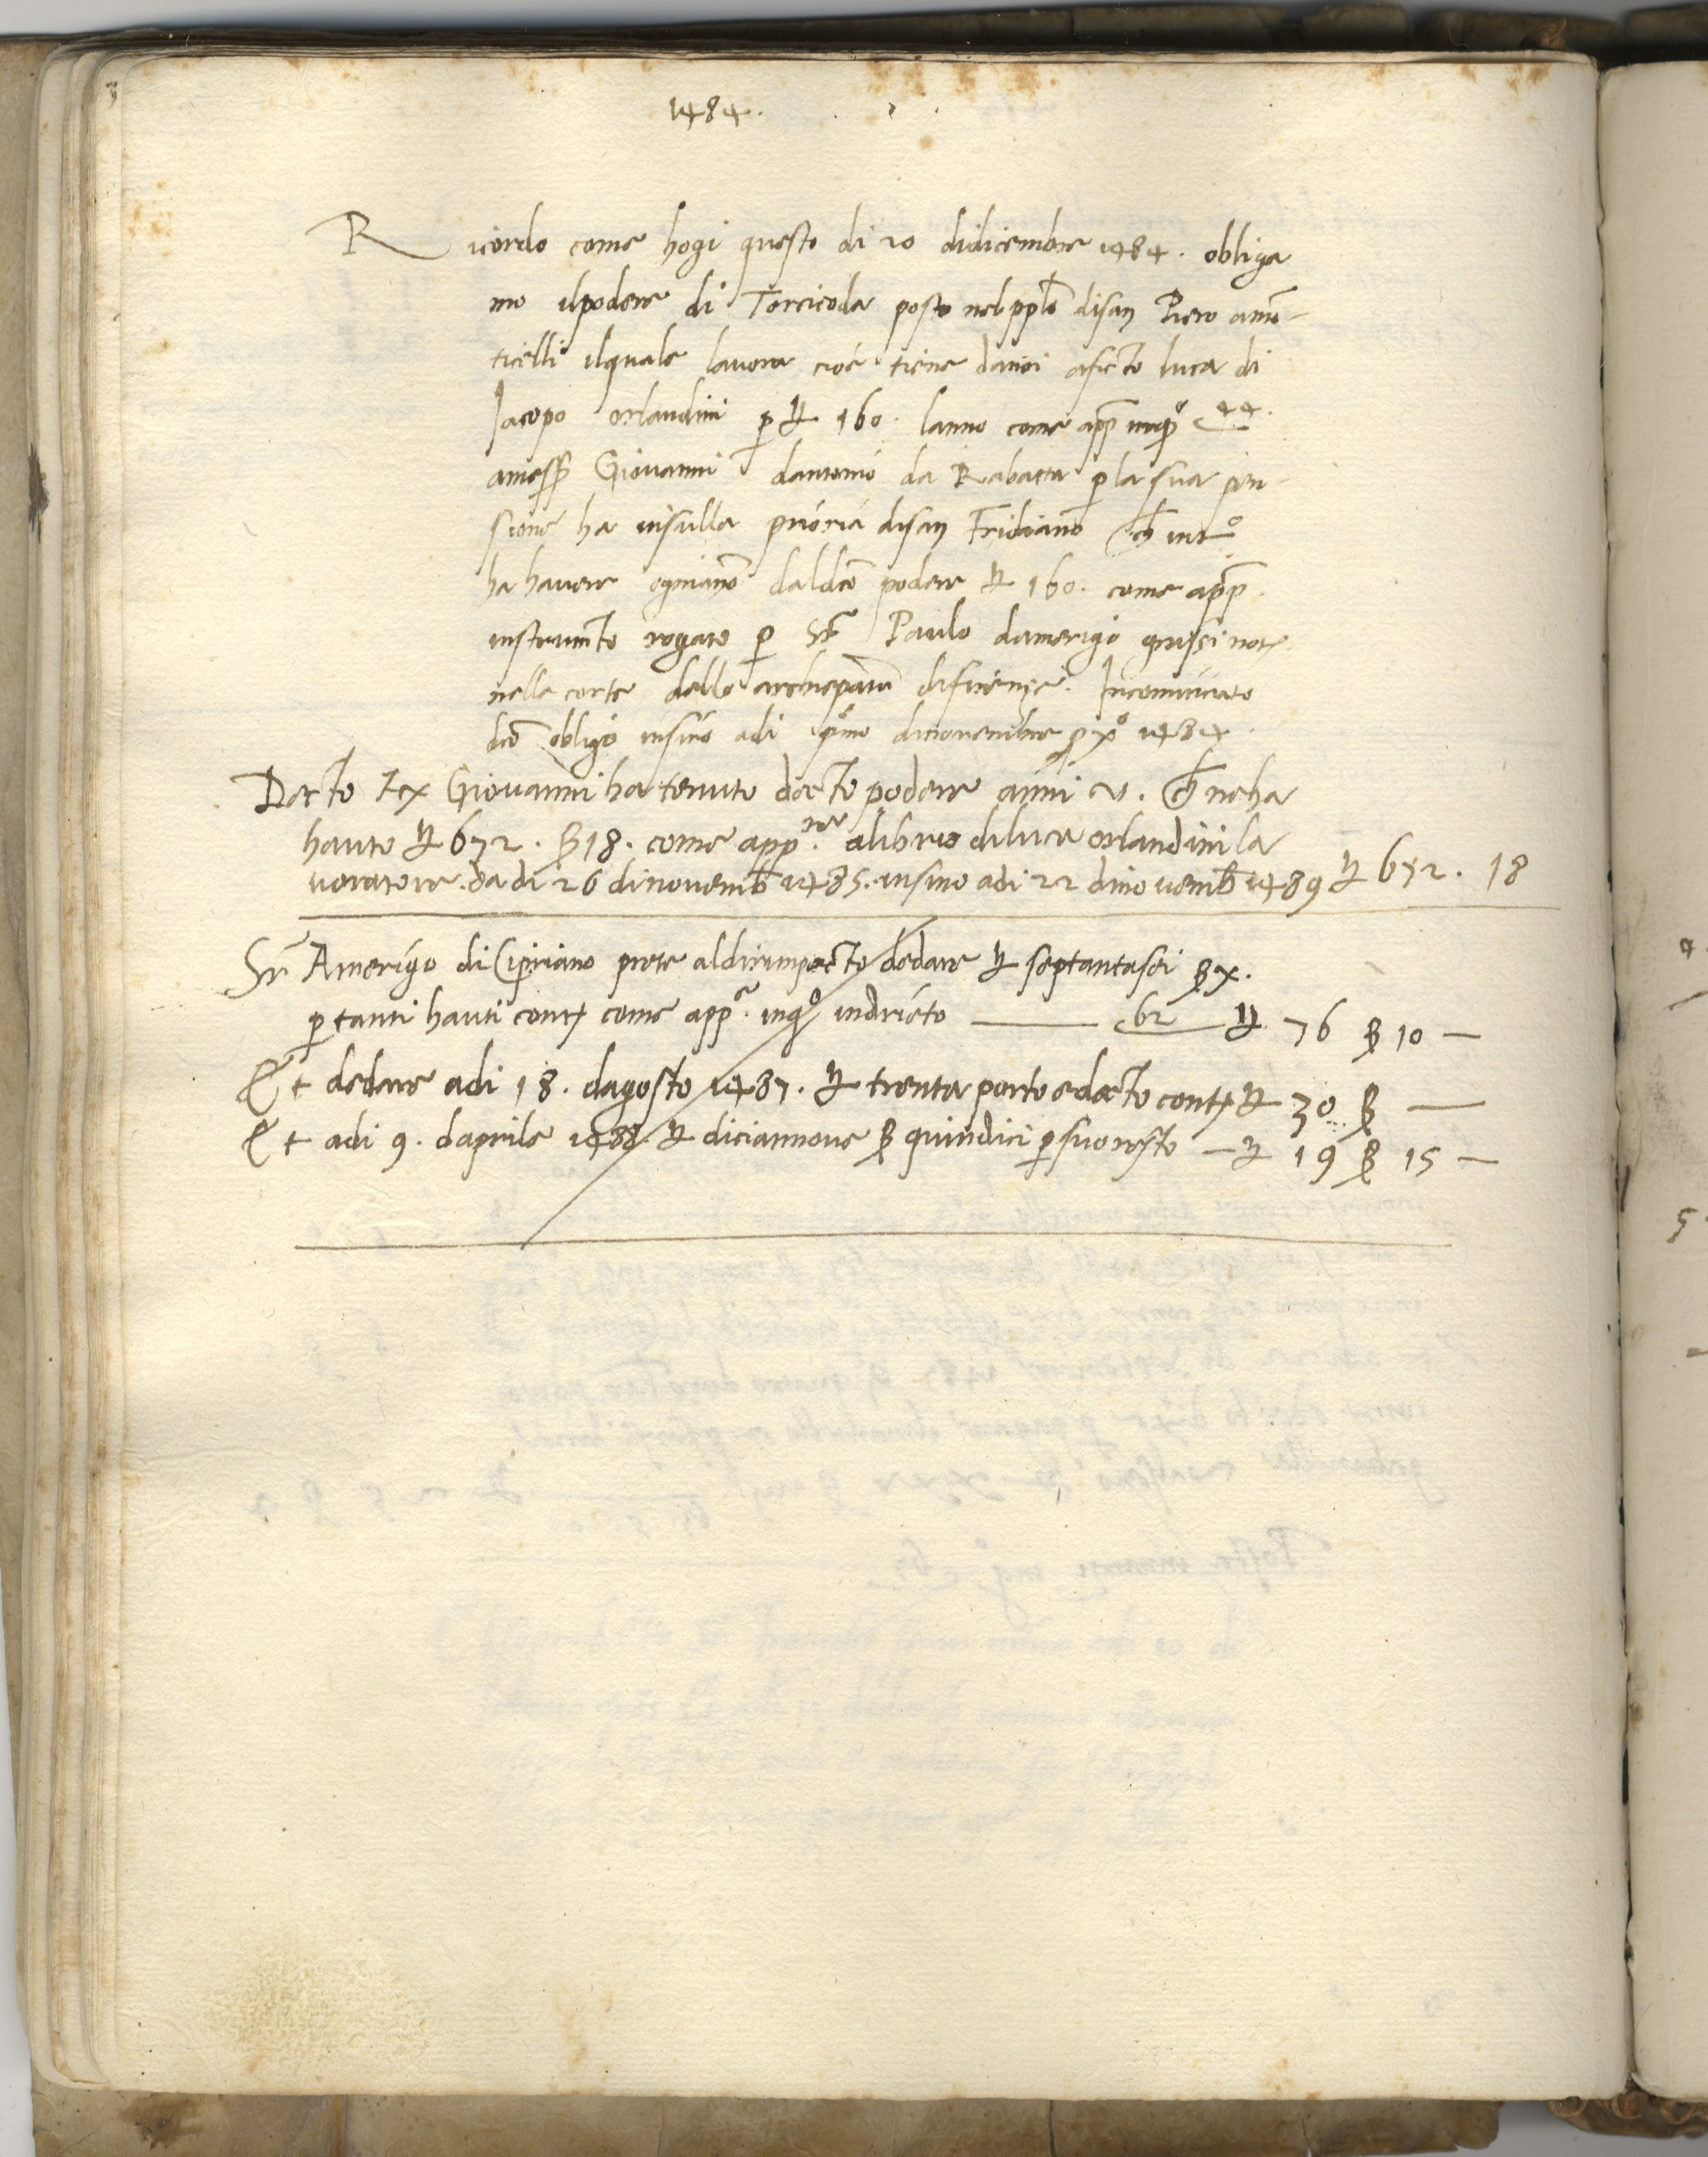 1484.
Ricordo come hogi questo di 20 didicembre 1484. obliga
mo ilpodere di Torcicoda posto nelpplo disan Piero amō-
ticelli ilquale lavora cioè tiene danoi aficto luca di
Jacopo orlandini p ₶ 160. lanno come app inqº 44.
amess Giovanni dantonio da Rabatta p la sua pen-
sione ha insulla prioria disan Fridiano ch intº
ha havere ogniano daldco podere ₶ 160. come app.
instrumto rogato p Ser Paulo damerigo grassi not.
nella corte dello archiepato difirenze. Incominciato
dco obligo insino adi pmo dinovembre pxº 1484.
Decto Giovanni ha tenuto decto podere anni v. ch neha
hauto ₶ 672. ß 18. come app.re alibrio diluca orlandini la
voratore. da di 26 dinovemb 1485. insino adi 22 dinovemb 1489 ₶ 672. 18
Sr Amerigo di Cipriano prete aldirimpecto dedare ₶ septantasei ß x.
p tanti hauti conti come app.e inqº indrieto 62 ₶ 76 ß 10 —
E t dedare adi 18. dagosto 1487. ₶ trenta porto e decto conti ₶ 30 ß —
E t adi 9. daprile 1488. ₶ diciannove ß quindici p suo resto — ₶ 19 ß 15 —